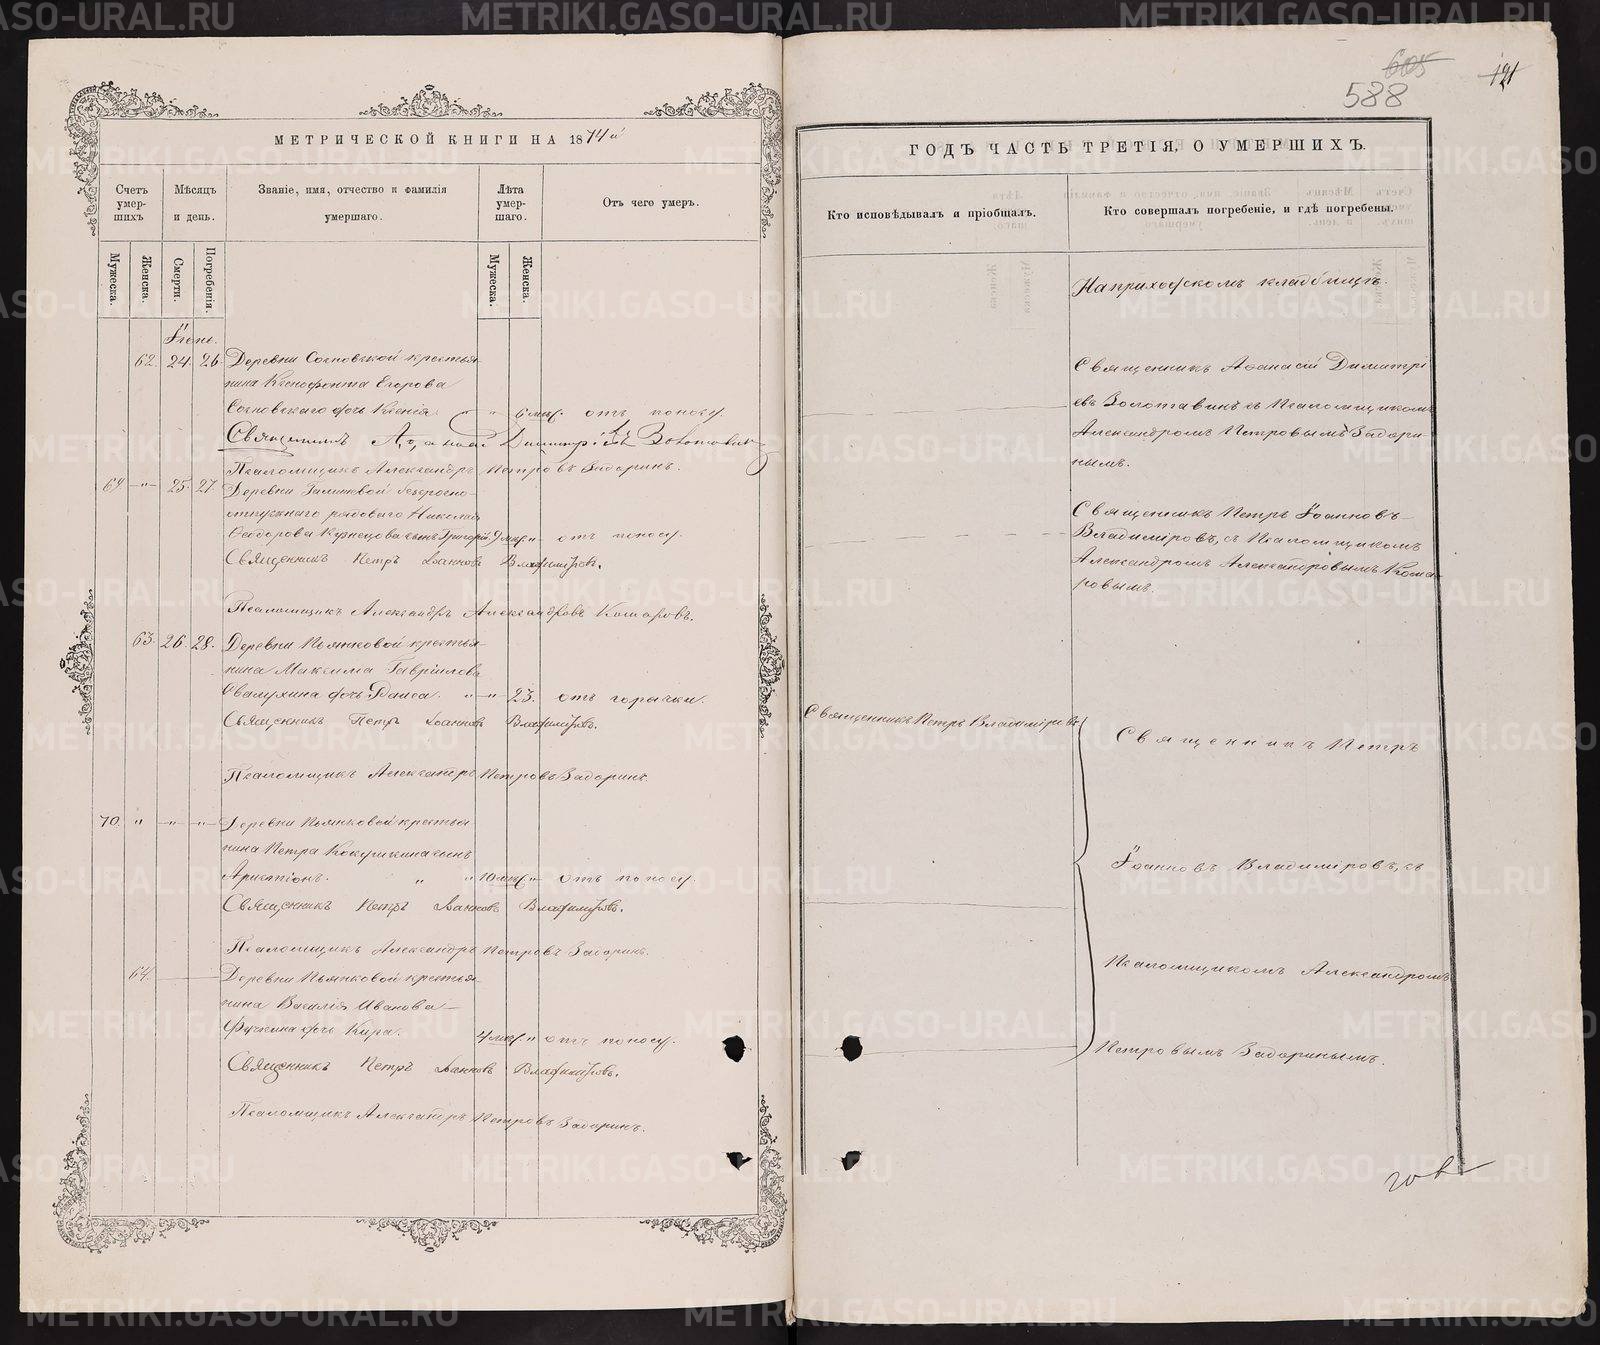 605
588
121
МЕТРИЧЕСКОЙ КНИГИ НА 1874й
Счетъ умер-шихъ
Мѣсяцъ и день.
Званіе, имя, отчество и фамилія умершаго.
Лѣта умер-шаго.
Отъ чего умеръ.
Мужеска.
Женска.
Смерти.
Погребенія.
Мужеска.
Женска.
62. 24. 26. Деревни Сосновской крестья-
нина Ксенофонта Егорова
Сосновскаго дочь Ксенія " 6 мѣс. отъ поносу.
Священникъ Димитріевъ Золотавин
Псаломщикъ Александръ Петровъ Задоринъ.
69 —"— 25. 27. Деревни безсрочно-
отпускнаго рядоваго Николая
Ѳеодорова Кузнецова сынъ Григорій 9 мѣс. " отъ поносу.
Священникъ Петръ Іоанновъ Владиміровъ.
Псаломщикъ Александръ Александровъ Комаровъ.
63. 26. 28. Деревни Пьянковой крестья-
нина Максима Гавриилова
дочь Раиса. " " 23. отъ горячки.
Священникъ Петръ Іоанновъ Владиміровъ.
Псаломщикъ Александръ Петровъ Задоринъ.
70. " —"— —"— Деревни Пьянковой крестья
нина Петра Кокушкина сынъ
Аристіонъ. " " 10 мѣс. " отъ поносу.
Священникъ Петръ Іоанновъ Владиміровъ.
Псаломщикъ Александръ Петровъ Задоринъ.
64. Деревни Пьянковой крестья-
нина Василія Иванова
дочь Кира. 4 мѣс. " отъ поносу.
Священникъ Петръ Іоанновъ Владиміровъ.
Псаломщикъ Александръ Петровъ Задоринъ.
ГОДЪ ЧАСТЬ ТРЕТІЯ, О УМЕРШИХЪ.
Кто исповѣдывалъ и пріобщалъ.
Кто совершалъ погребеніе, и гдѣ погребены.
На приходскомъ кладбищѣ.
Священникъ Аѳанасій Димитрі
евъ Золотавинъ съ Псаломщикомъ
Александромъ Петровымъ Задори-
нымъ.
Священникъ Петръ Іоанновъ
Владиміровъ, съ Псаломщикомъ
Александромъ Александровымъ Кома-
ровымъ.
Священникъ Петръ Владиміровъ
Священникъ Петръ
Іоанновъ Владиміровъ, съ
Псаломщикомъ Александромъ
Петровымъ Задоринымъ.
METRIKI.GASO-URAL.RU